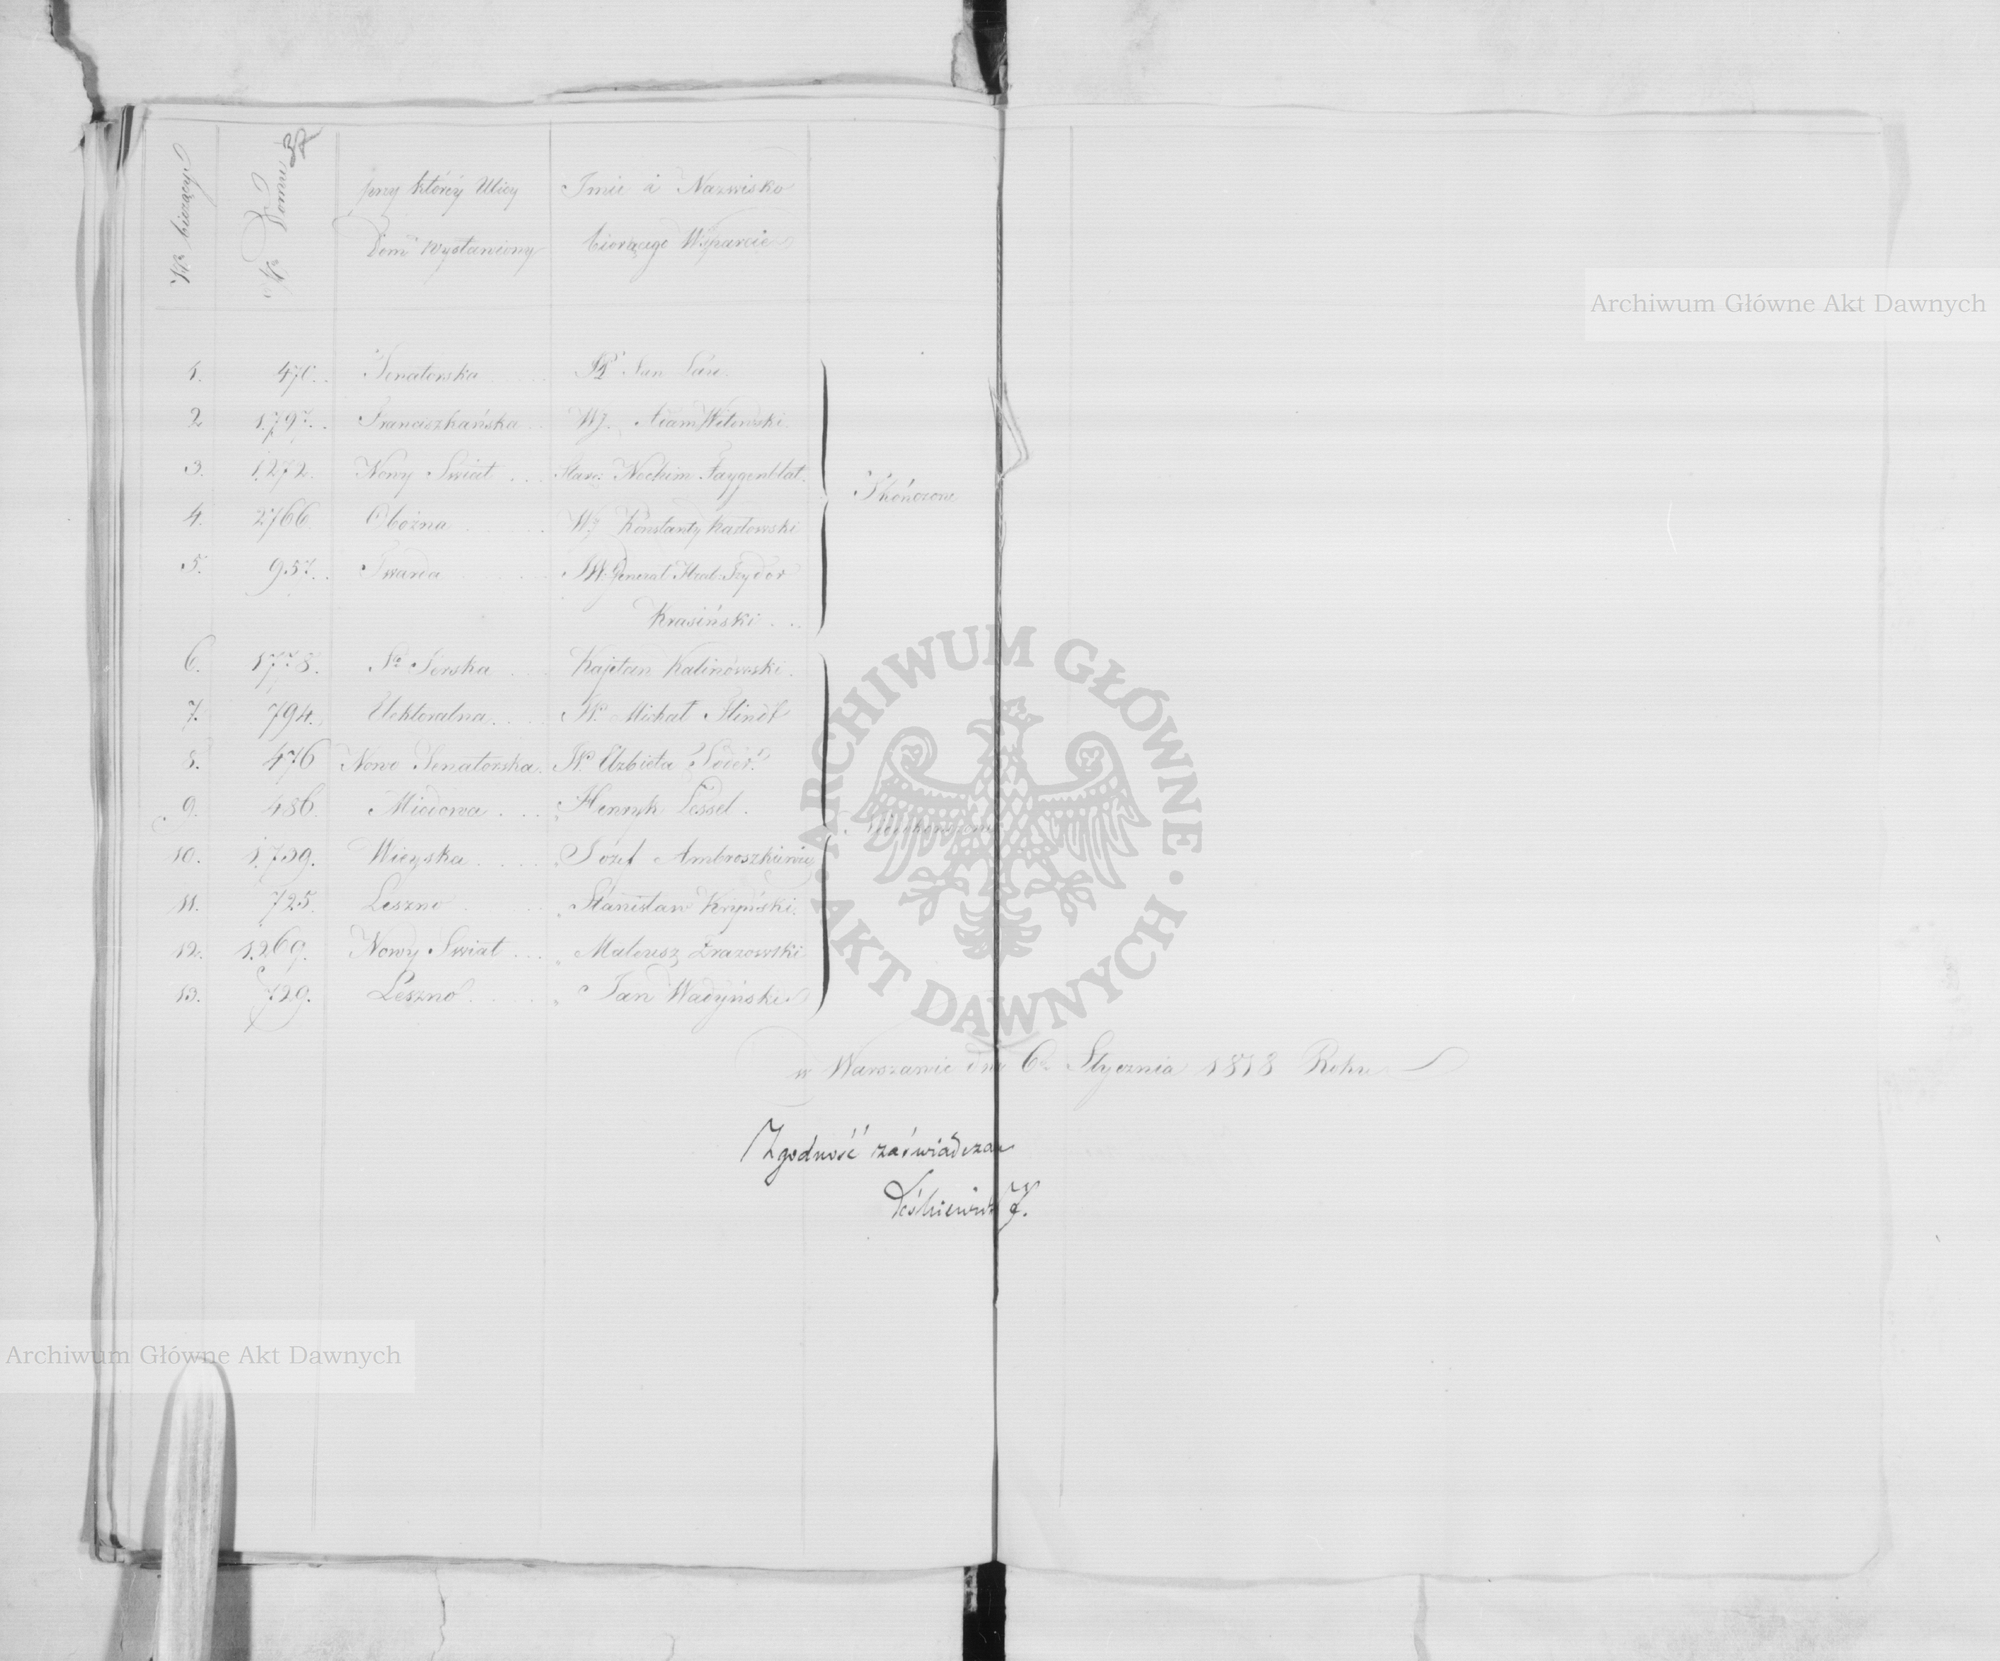 Nr bieżący
Nr Domu
32
przy któréy Ulicy
Dom wystawiony
Imie i Nazwisko
biorącego Wsparcie
1. 470. Senatorska Jan
2 1797. Franciszkańska Adam Witowski.
3. 1272. Nowy Swiat Staro: Nochim Faygenblat.
4. 2766. Obozna Konstanty
5. 957. Twarda JW. Generał Hrab: Izydor
Krasiński
Skończone
6. 1778. Kajetan Kalinowski.
7. 794. Elektoralna W. Michał
8. 476 Nowo Senatorska. W. Elzbieta
9. 486. Miodowa Henryk Lessel.
Niedokończone
10. 1739. Wieyska Józef Ambroszkiewicz
11. 725. Leszno Stanisław Krypiński.
12. 1269. Nowy Swiat Mateusz Zrazowski
13. 729. Leszno Jan Wadyński
w Warszawie dnia 6. Stycznia 1818 Roku
Zgodność zaświadczam
Archiwum Główne Akt Dawnych
ARCHIWUM GŁÓWNE
AKT DAWNYCH
Archiwum Główne Akt Dawnych